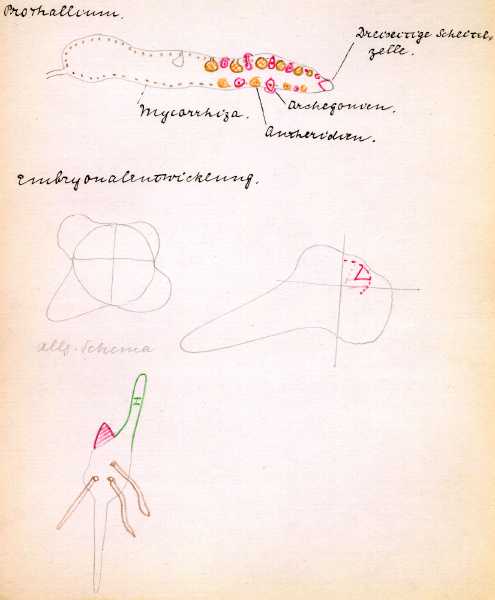 Prothallium.
Dreiseitige Scheitel-
zelle.
Mycorrhiza.
Archegonien.
Antheridien.
Embryonalentwicklung.
Allg. Schema